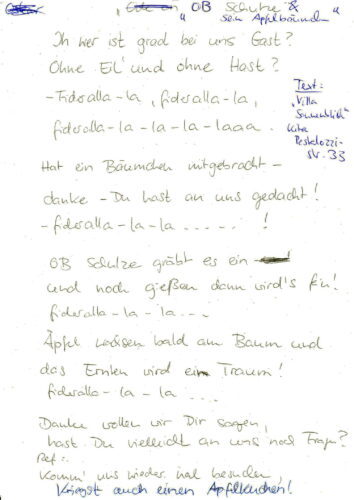 „ OB Schulze &
sein Apfelbäumchen "
Ih wer ist grad bei uns Gast?
Ohne Eil' und ohne Hast?
- Fideralla - la, fideralla - la,
fideralla - la - la - la - laaa.
Text:
„Villa
Sonnenblick"
Kita
Pestalozzi-
str. 33
Hat ein Bäumchen mitgebracht -
danke - Du hast an uns gedacht!
- fideralla - la - la . . . . . !
OB Schulze gräbt es ein -
und noch gießen dann wird's fein!
fideralla - la - la . . .
Äpfel wachsen bald am Baum und
das Ernten wird ein Traum!
fideralla - la - la . . .
Danke wollen wir Dir sagen,
hast Du vielleicht an uns noch Fragen?
Ref.:
Komm' uns wieder mal besuchen,
Kriegst auch einen Apfelkuchen!